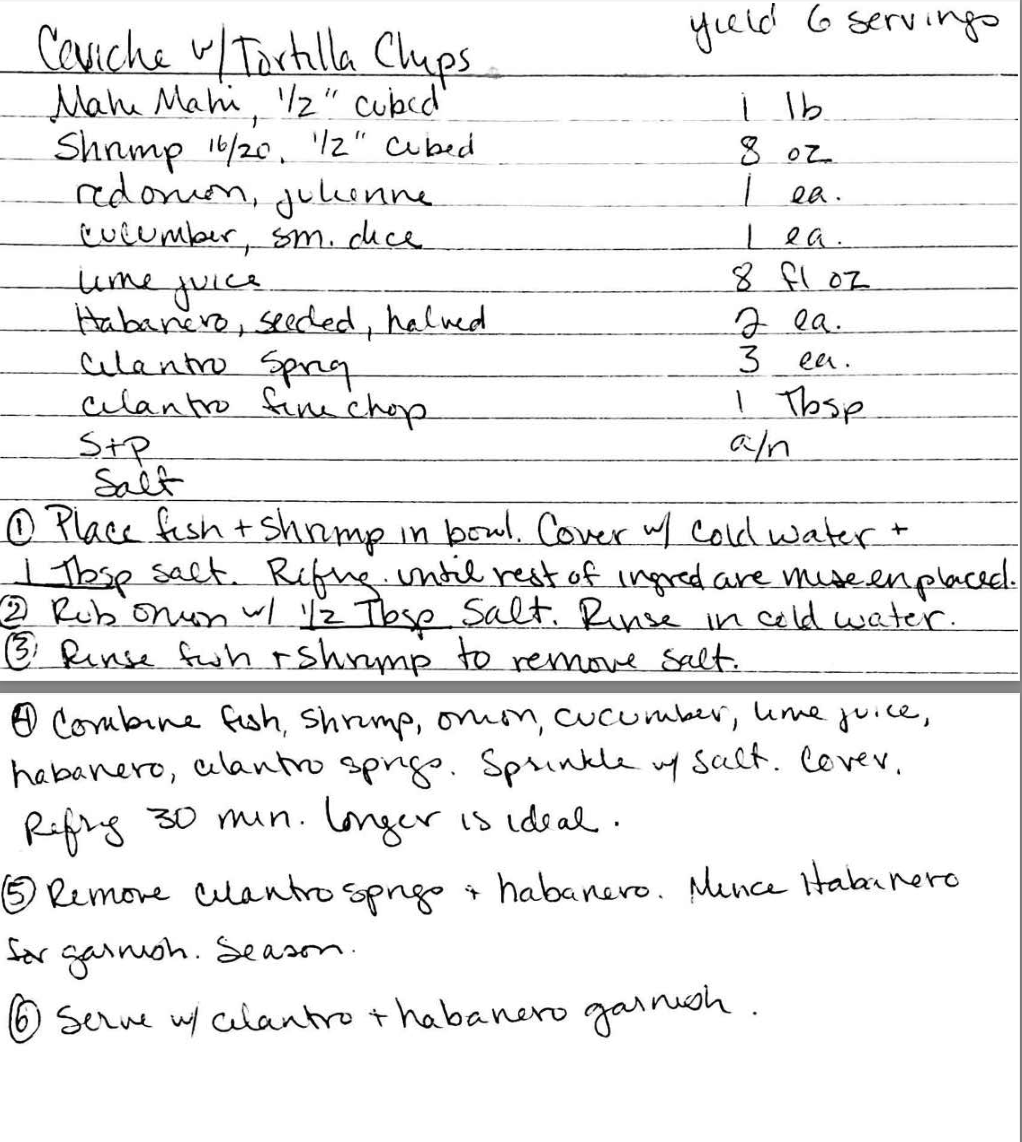 yield 6 servings
Ceviche w/ Tortilla Chips
Mahi Mahi, 1/2" cubed 1 lb
Shrimp 16/20, 1/2" cubed 8 oz
red onion, julienne 1 ea.
cucumber, sm. dice 1 ea.
lime juice 8 fl oz
Habanero, seeded, halved 2 ea.
Cilantro Sprig 3 ea.
cilantro fine chop 1 Tbsp
S+P a/n
Salt
① Place fish + shrimp in bowl. Cover w/ cold water +
1 Tbsp salt. Refrig. until rest of ingred are mise en placed.
② Rub onion w/ 1/2 Tbsp Salt. Rinse in cold water.
③ Rinse fish + shrimp to remove salt.
④ Combine fish, shrimp, onion, cucumber, lime juice,
habanero, cilantro sprigs. Sprinkle w/ salt. Cover.
Refrig 30 min. Longer is ideal.
⑤ Remove cilantro sprigs + habanero. Mince Habanero
for garnish. Season.
⑥ Serve w/ cilantro + habanero garnish.